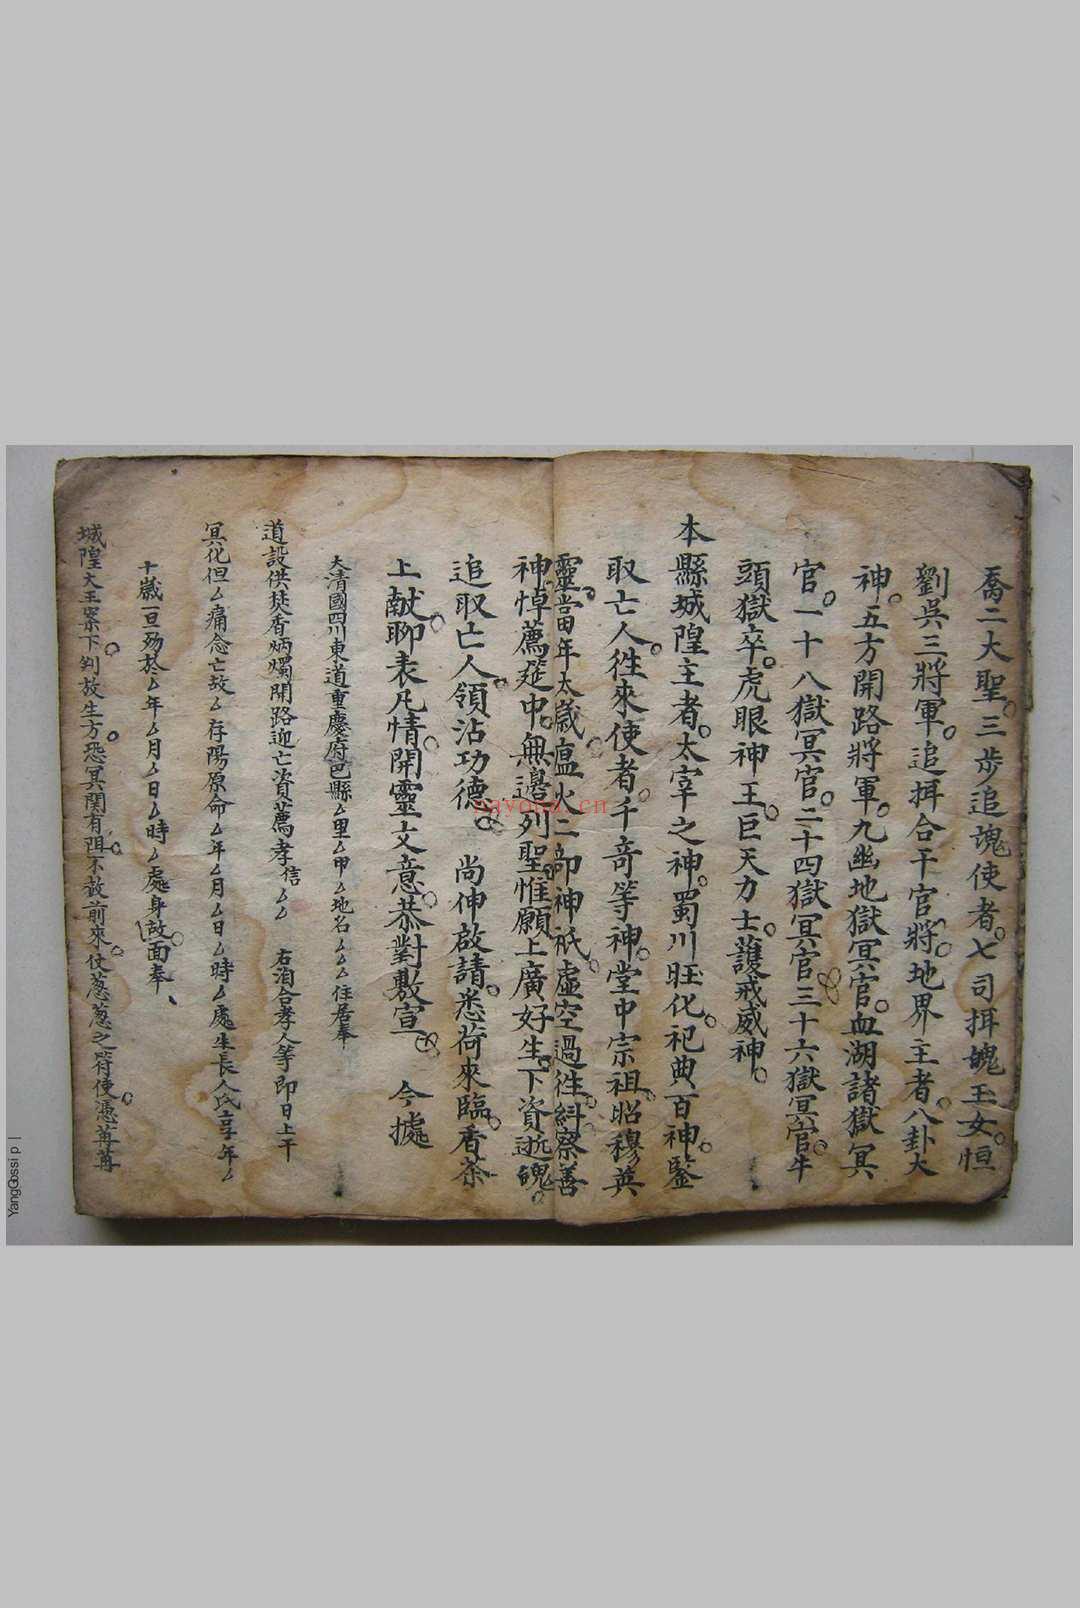 喬二大聖。三步追魂使者。七司拜魄玉女。恒
劉吳三將軍。追拜合干官將。地界主者。八卦大
神。五方開路將軍。九幽地獄冥官。血湖諸獄冥
官。一十八獄冥官。二十四獄冥官三十六獄冥官。牛
頭獄卒。虎眼神王。巨天力士。護戒威神。
本縣城隍主者。太宰之神。蜀川旺化。祀典百神。鑒
取亡人。徃來使者。千竒等神。堂中宗祖。昭穆英
靈。當年太歲。瘟火二部神祇。虛空過徃。糾察善
神。悼薦筵中。無邊列聖。惟願上廣好生。下資逝魄。
追取亡人。領沾功德。 尚伸啟請。悉荷來臨。香茶
上献。聊表凡情。開靈文意。恭對敷宣。 今據
大清國四川東道重慶府巴縣厶里厶甲厶地名厶厶厶住居奉
道設供焚香炳燭開路迎亡資薦孝信厶厶 右洎合孝人等即日上干
冥化但厶痛念亡故厶存陽原命厶年厶月厶日厶時厶處生長人氏享年厶
十歲一旦殀於厶年厶月厶日厶時厶處身故。面奉、
城隍大王案下。判放生方。恐冥関有阻。不放前來。仗葱葱之符使。憑苒苒
payond.cn
YangGossip |